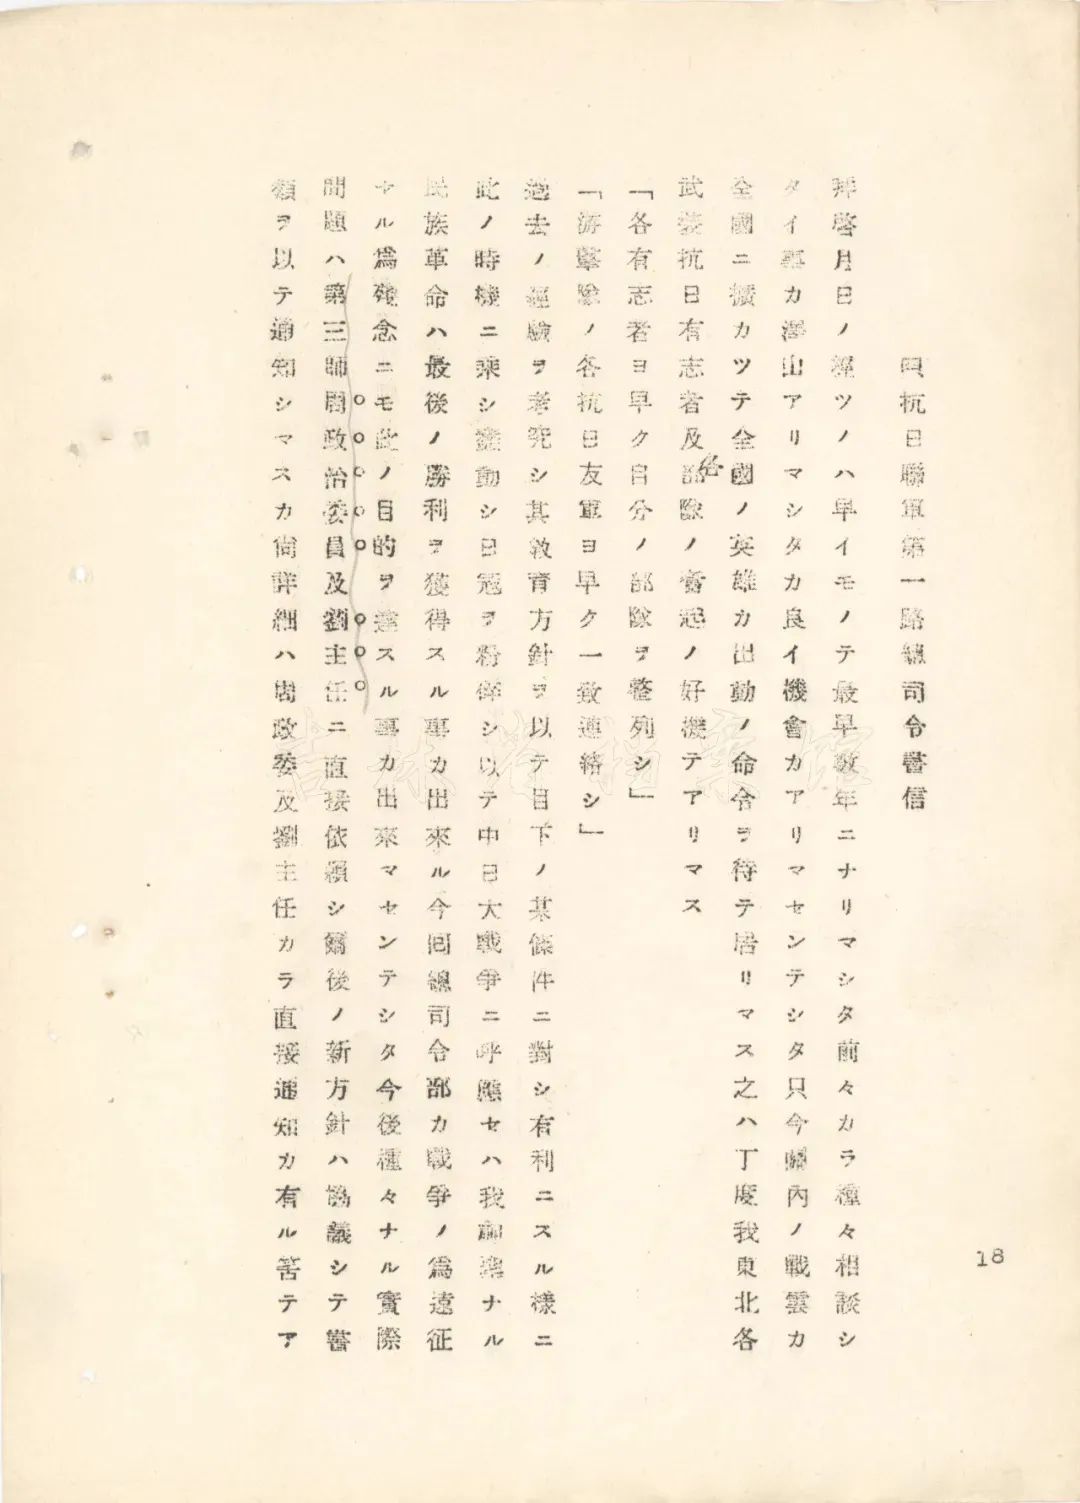 四抗日聯軍第一路總司令書信
拜啓月日ノ經ツノハ早イモノテ最早數年ニナリマシタ前々カラ種々相談シ
タイ事カ澤山アリマシタカ良イ機會カアリマセンテシタ只今關內ノ戰雲カ
全國ニ擴カツテ全國ノ英雄カ出動ノ命令ヲ待テ居リマス之ハ丁度我東北各
武裝抗日有志者及各部隊ノ奮起ノ好機テアリマス
「各有志者ヨ早ク自分ノ部隊ヲ整列シ」
「游擊隊ノ各抗日友軍ヨ早ク一致連絡シ」
過去ノ經驗ヲ考究シ其敎育方針ヲ以テ目下ノ某條件ニ對シ有利ニスル樣ニ
此ノ時機ニ乘シ蠢動シ日冠ヲ粉碎シ以テ中日大戰爭ニ呼應セハ我神聖ナル
民族革命ハ最後ノ勝利ヲ獲得スル事カ出來ル今囘總司令部カ戰爭ノ爲遠征
セル爲殘念ニモ此ノ目的ヲ達スル事カ出來マセンテシタ今後種々ナル實際
問題ハ第三師周政治委員及劉主任ニ直接依賴シ爾後ノ新方針ハ協議シテ書
類ヲ以テ通知シマスカ尙詳細ハ周政委及劉主任カラ直接通知カ有ル筈テア
18
吉林省檔案館